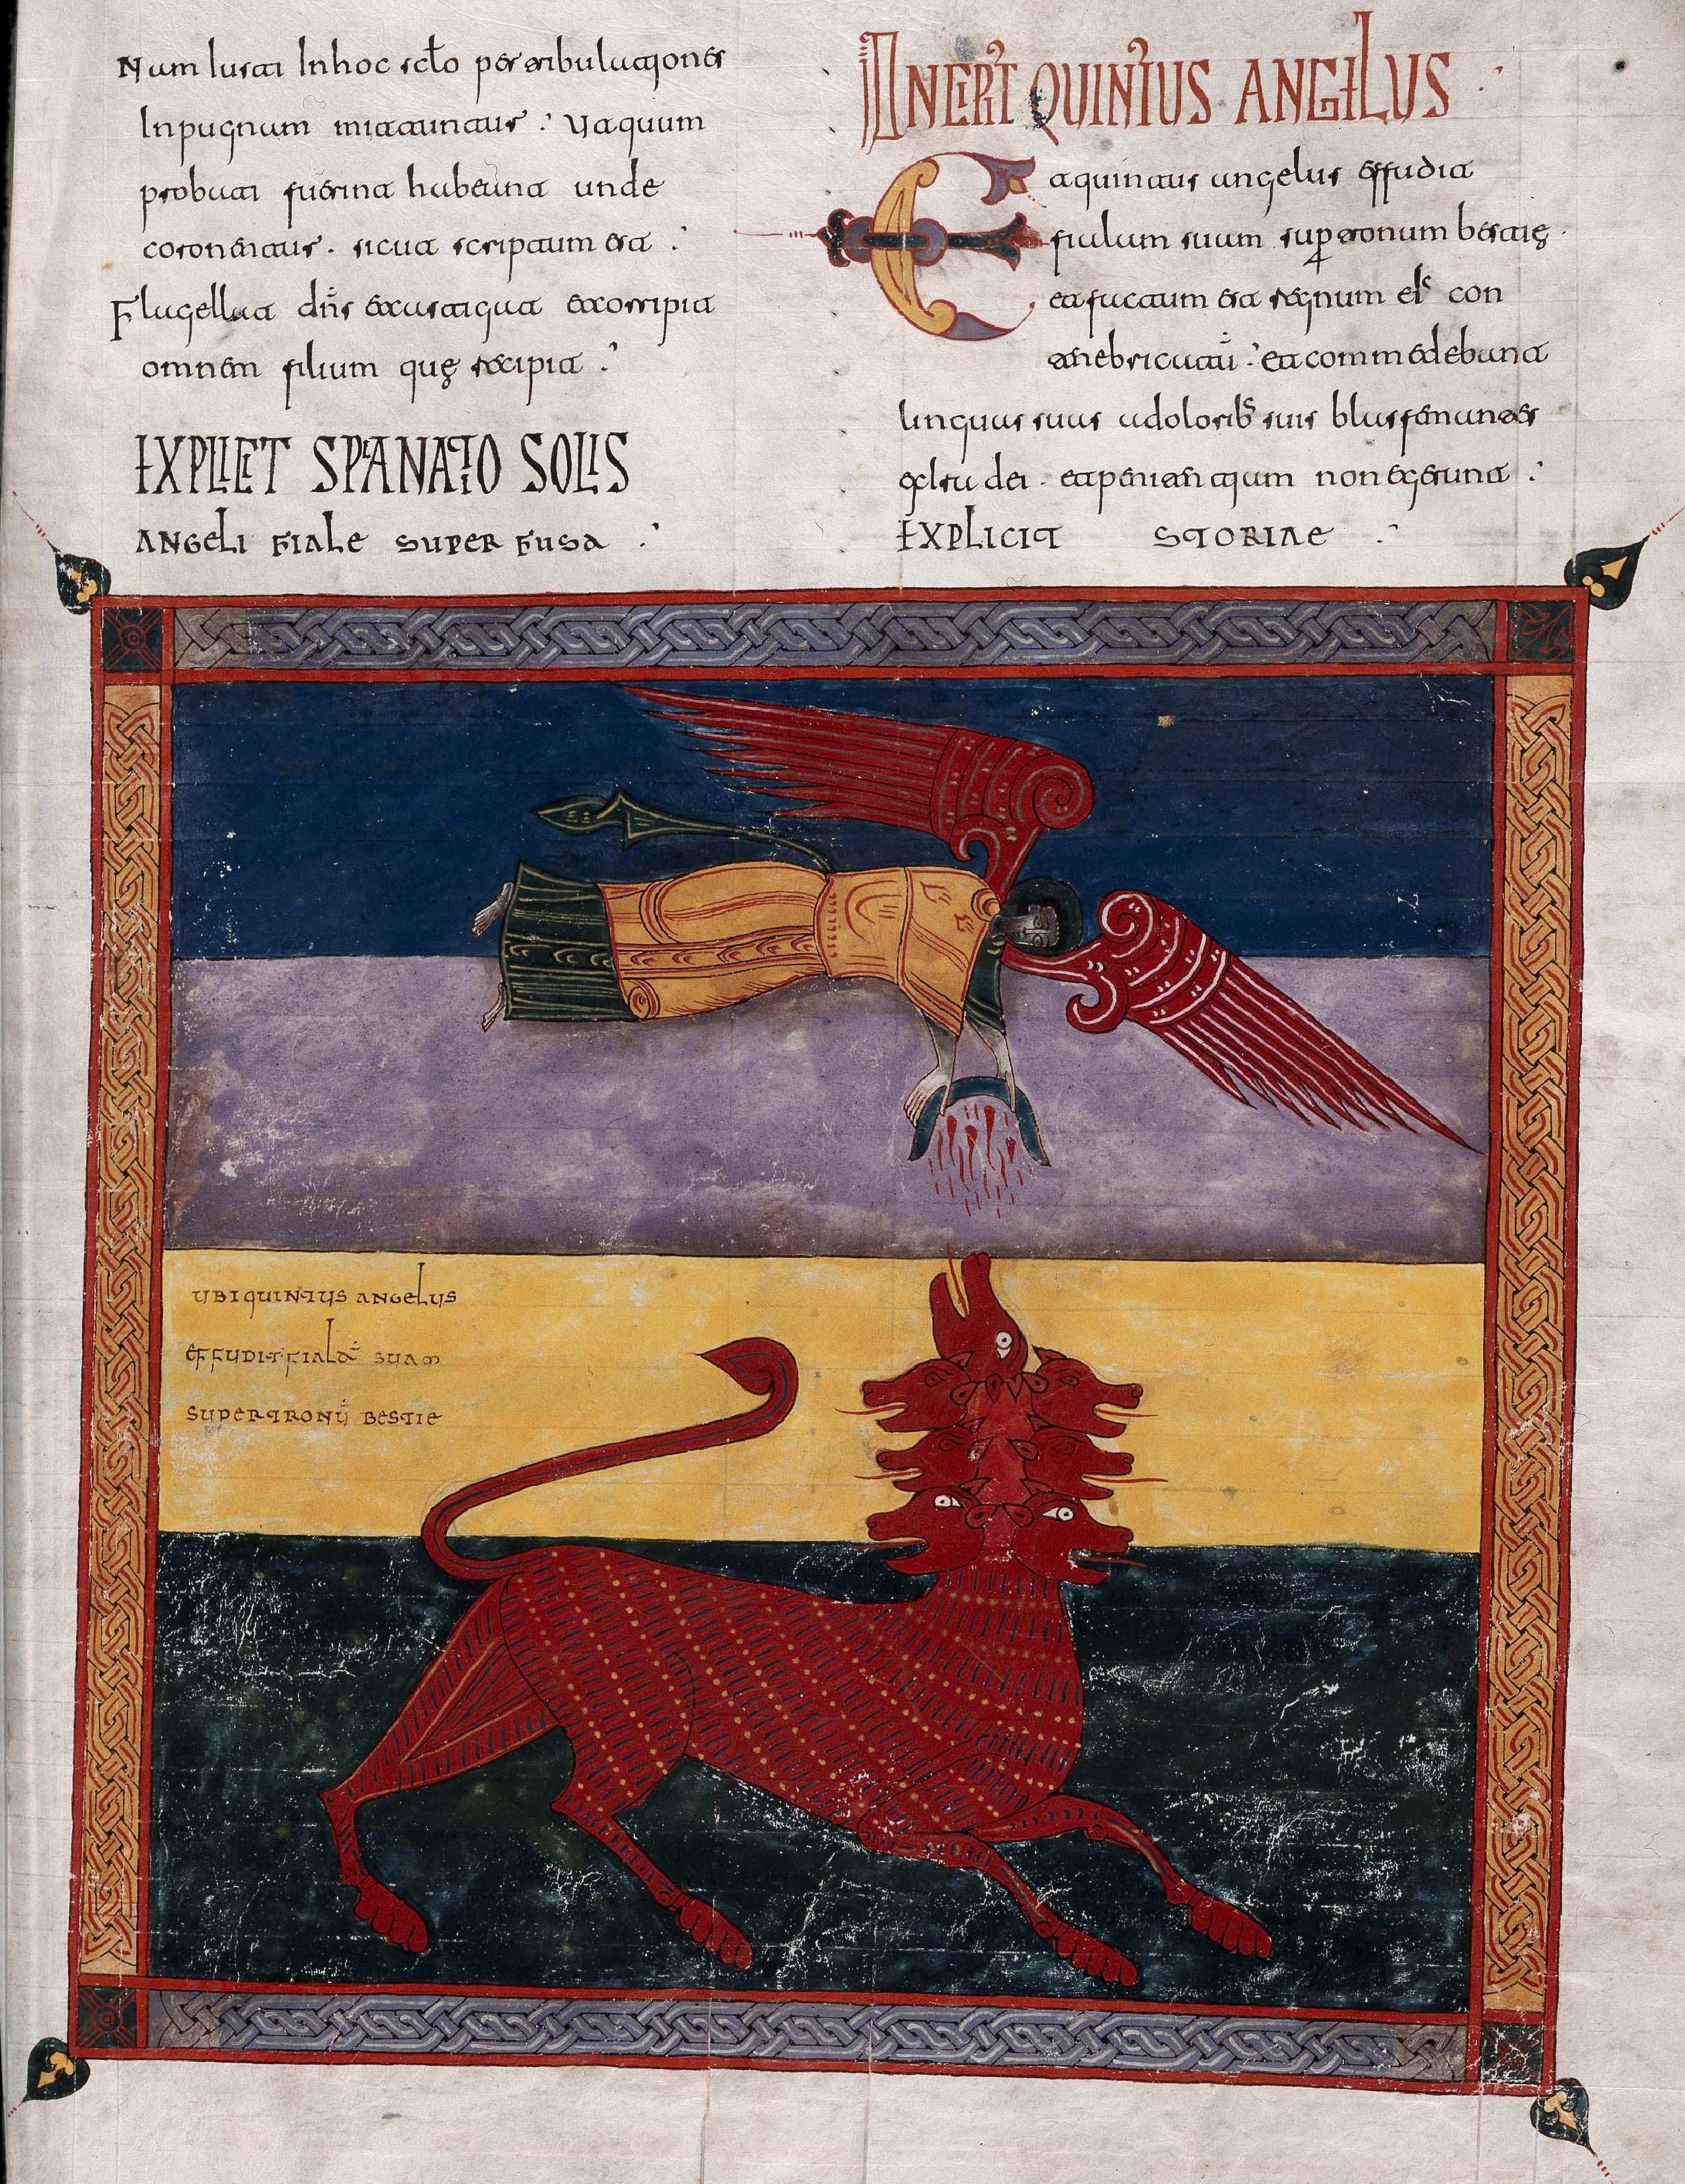 Nam iusti In hoc sclo per tribulationes
Inpugnam mittuntur : Ut quum
probati fuerint habeant unde
coronentur . sicut scriptum est :
Flagellat dns et castigat et corripit
omnem filium quę recipit :
EXPLICIT SPLANATIO SOLIS
ANGELI FIALE SUPER FUSA :
INCIPIT QUINTUS ANGELUS
Et quintus angelus effudit
fialam suam super tronum bestię .
et factum est regnum eIs con
tenebricatū : et commedebant
linguas suas a doloribs suis blasfemantes
dei . et penitentiam non egerunt :
EXPLICIT STORIAE :
UBI QUINTUS ANGELUS
EFFUDIT FIALĀ SUAM
SUPER TRONŪ BESTIE